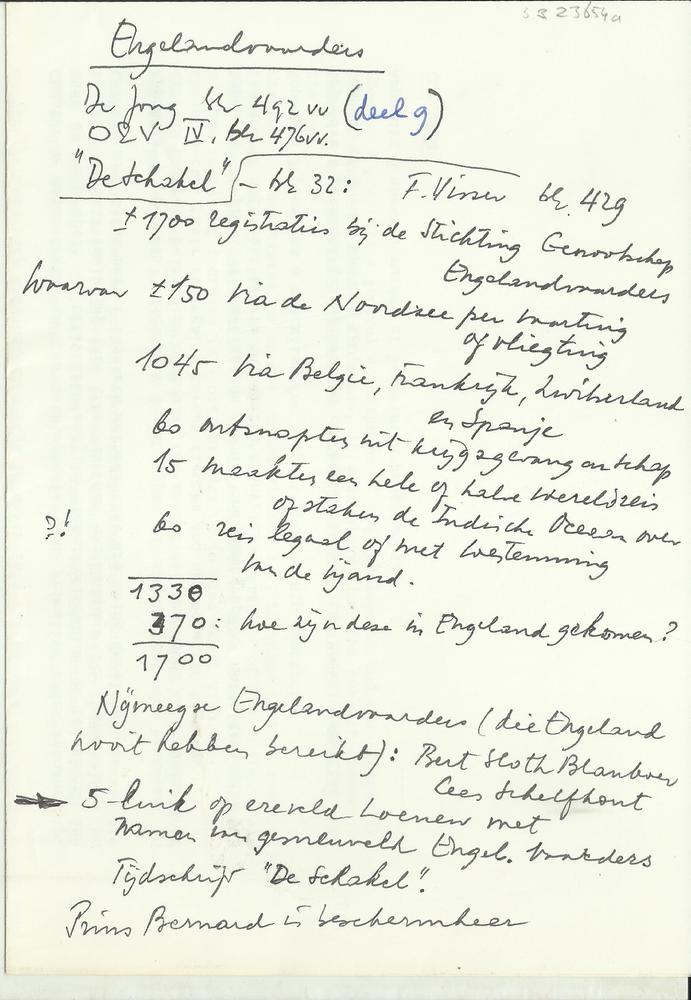 Engelandvaarders
De Jong blz 492 vv (deel 9)
O & V IV, blz 476 vv.
"De Schakel" - blz 32: F. Visser blz. 429
± 1700 registraties bij de Stichting Genootschap
Engelandvaarders
Waarvan ± 150 via de Noordzee per vaartuig
of vliegtuig
1045 via België, Frankrijk, Zwitserland
en Spanje
60 ontsnapten uit krijgsgevangenschap
15 maakten een hele of halve wereldreis
of staken de Indische Oceaan over
?! 60 reis legaal of met toestemming
van de vijand.
1330
370: hoe zijn deze in Engeland gekomen?
1700
Nijmeegse Engelandvaarders (die Engeland
nooit hebben bereikt): Bert Sloth Blauboer
Cees Schelfhout
5-luik op ereveld Loenen met
namen van gesneuveld Engel. vaarders
Tijdschrift "De Schakel".
Prins Bernard is beschermheer